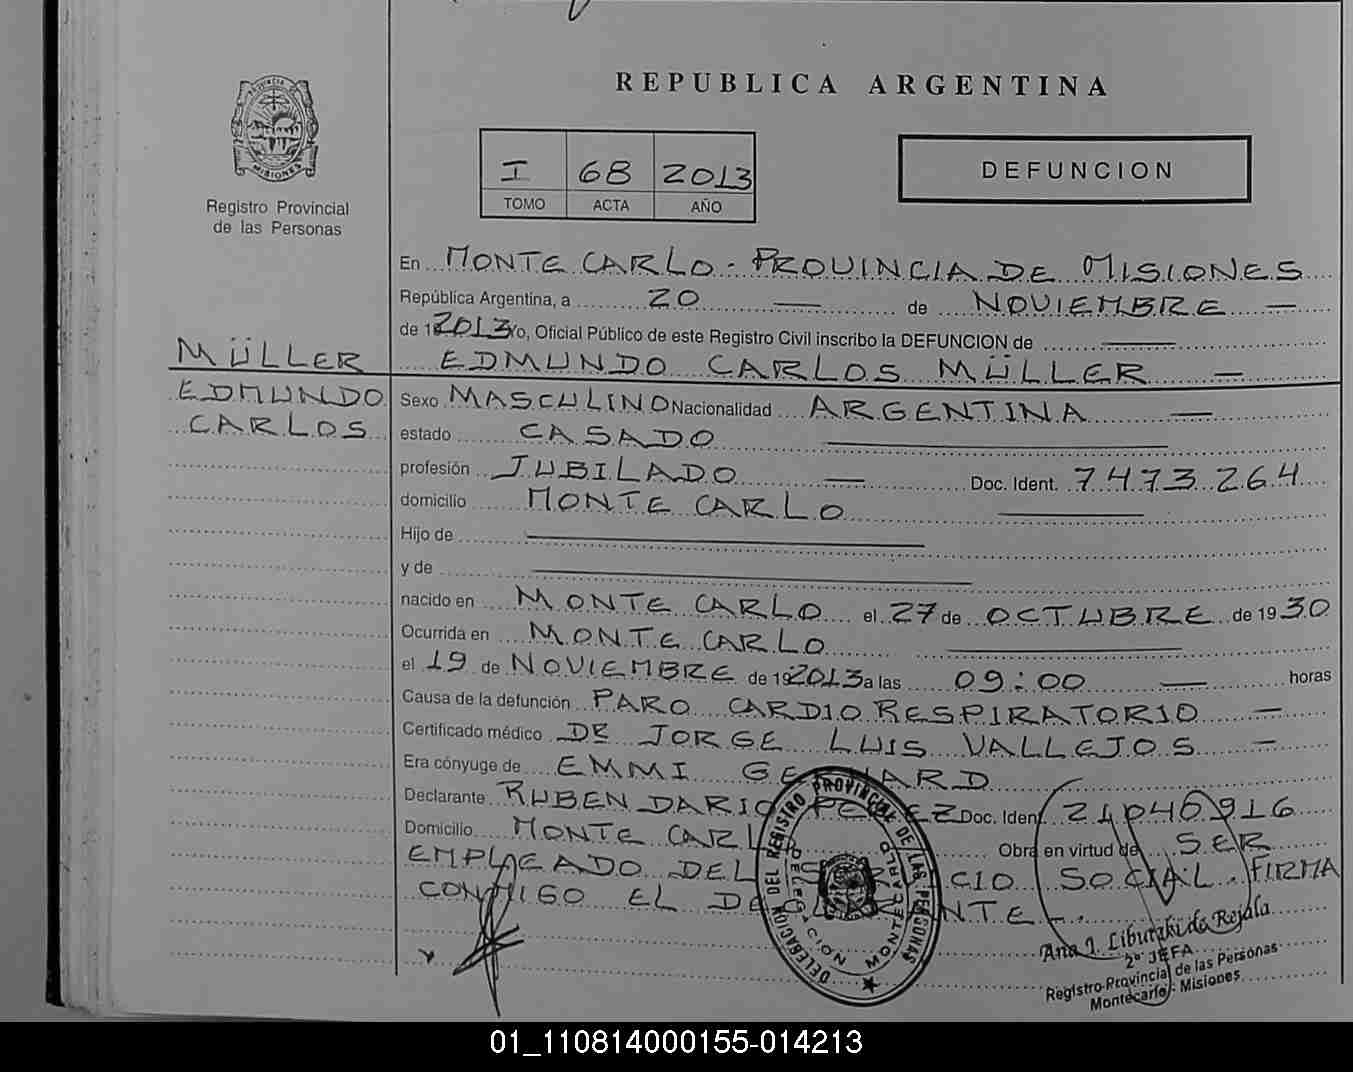 REPUBLICA ARGENTINA
PROVINCIA DE MISIONES
Registro Provincial
de las Personas
I 68 2013
TOMO ACTA AÑO
DEFUNCION
En MONTE CARLO - PROVINCIA DE MISIONES
República Argentina, a 20 — de NOVIEMBRE —
de 1 2013 Yo, Oficial Público de este Registro Civil inscribo la DEFUNCION de
MÜLLER EDMUNDO CARLOS MÜLLER —
EDMUNDO Sexo MASCULINO Nacionalidad ARGENTINA —
CARLOS estado CASADO
profesión JUBILADO — Doc. Ident. 7473264
domicilio MONTE CARLO
Hijo de
y de
nacido en MONTE CARLO el 27 de OCTUBRE de 1930
Ocurrida en MONTE CARLO
el 19 de NOVIEMBRE de 19 2013 a las 09:00 — horas
Causa de la defunción PARO CARDIO RESPIRATORIO —
Certificado médico DR JORGE LUIS VALLEJOS —
Era cónyuge de EMMI
Declarante RUBEN DARIO PEREZ Doc. Ident 21040916
Domicilio MONTE CARLO Obra en virtud de SER
EMPLEADO DEL SERVICIO SOCIAL. FIRMA
CONMIGO EL DECLARANTE -.
DELEGACION DEL REGISTRO PROVINCIAL DE LAS PERSONAS
DELEGACION MONTECARLO
Ana I. de Rejala
2º JEFA
Registro Provincial de las Personas
Montecarlo - Misiones
01_110814000155-014213